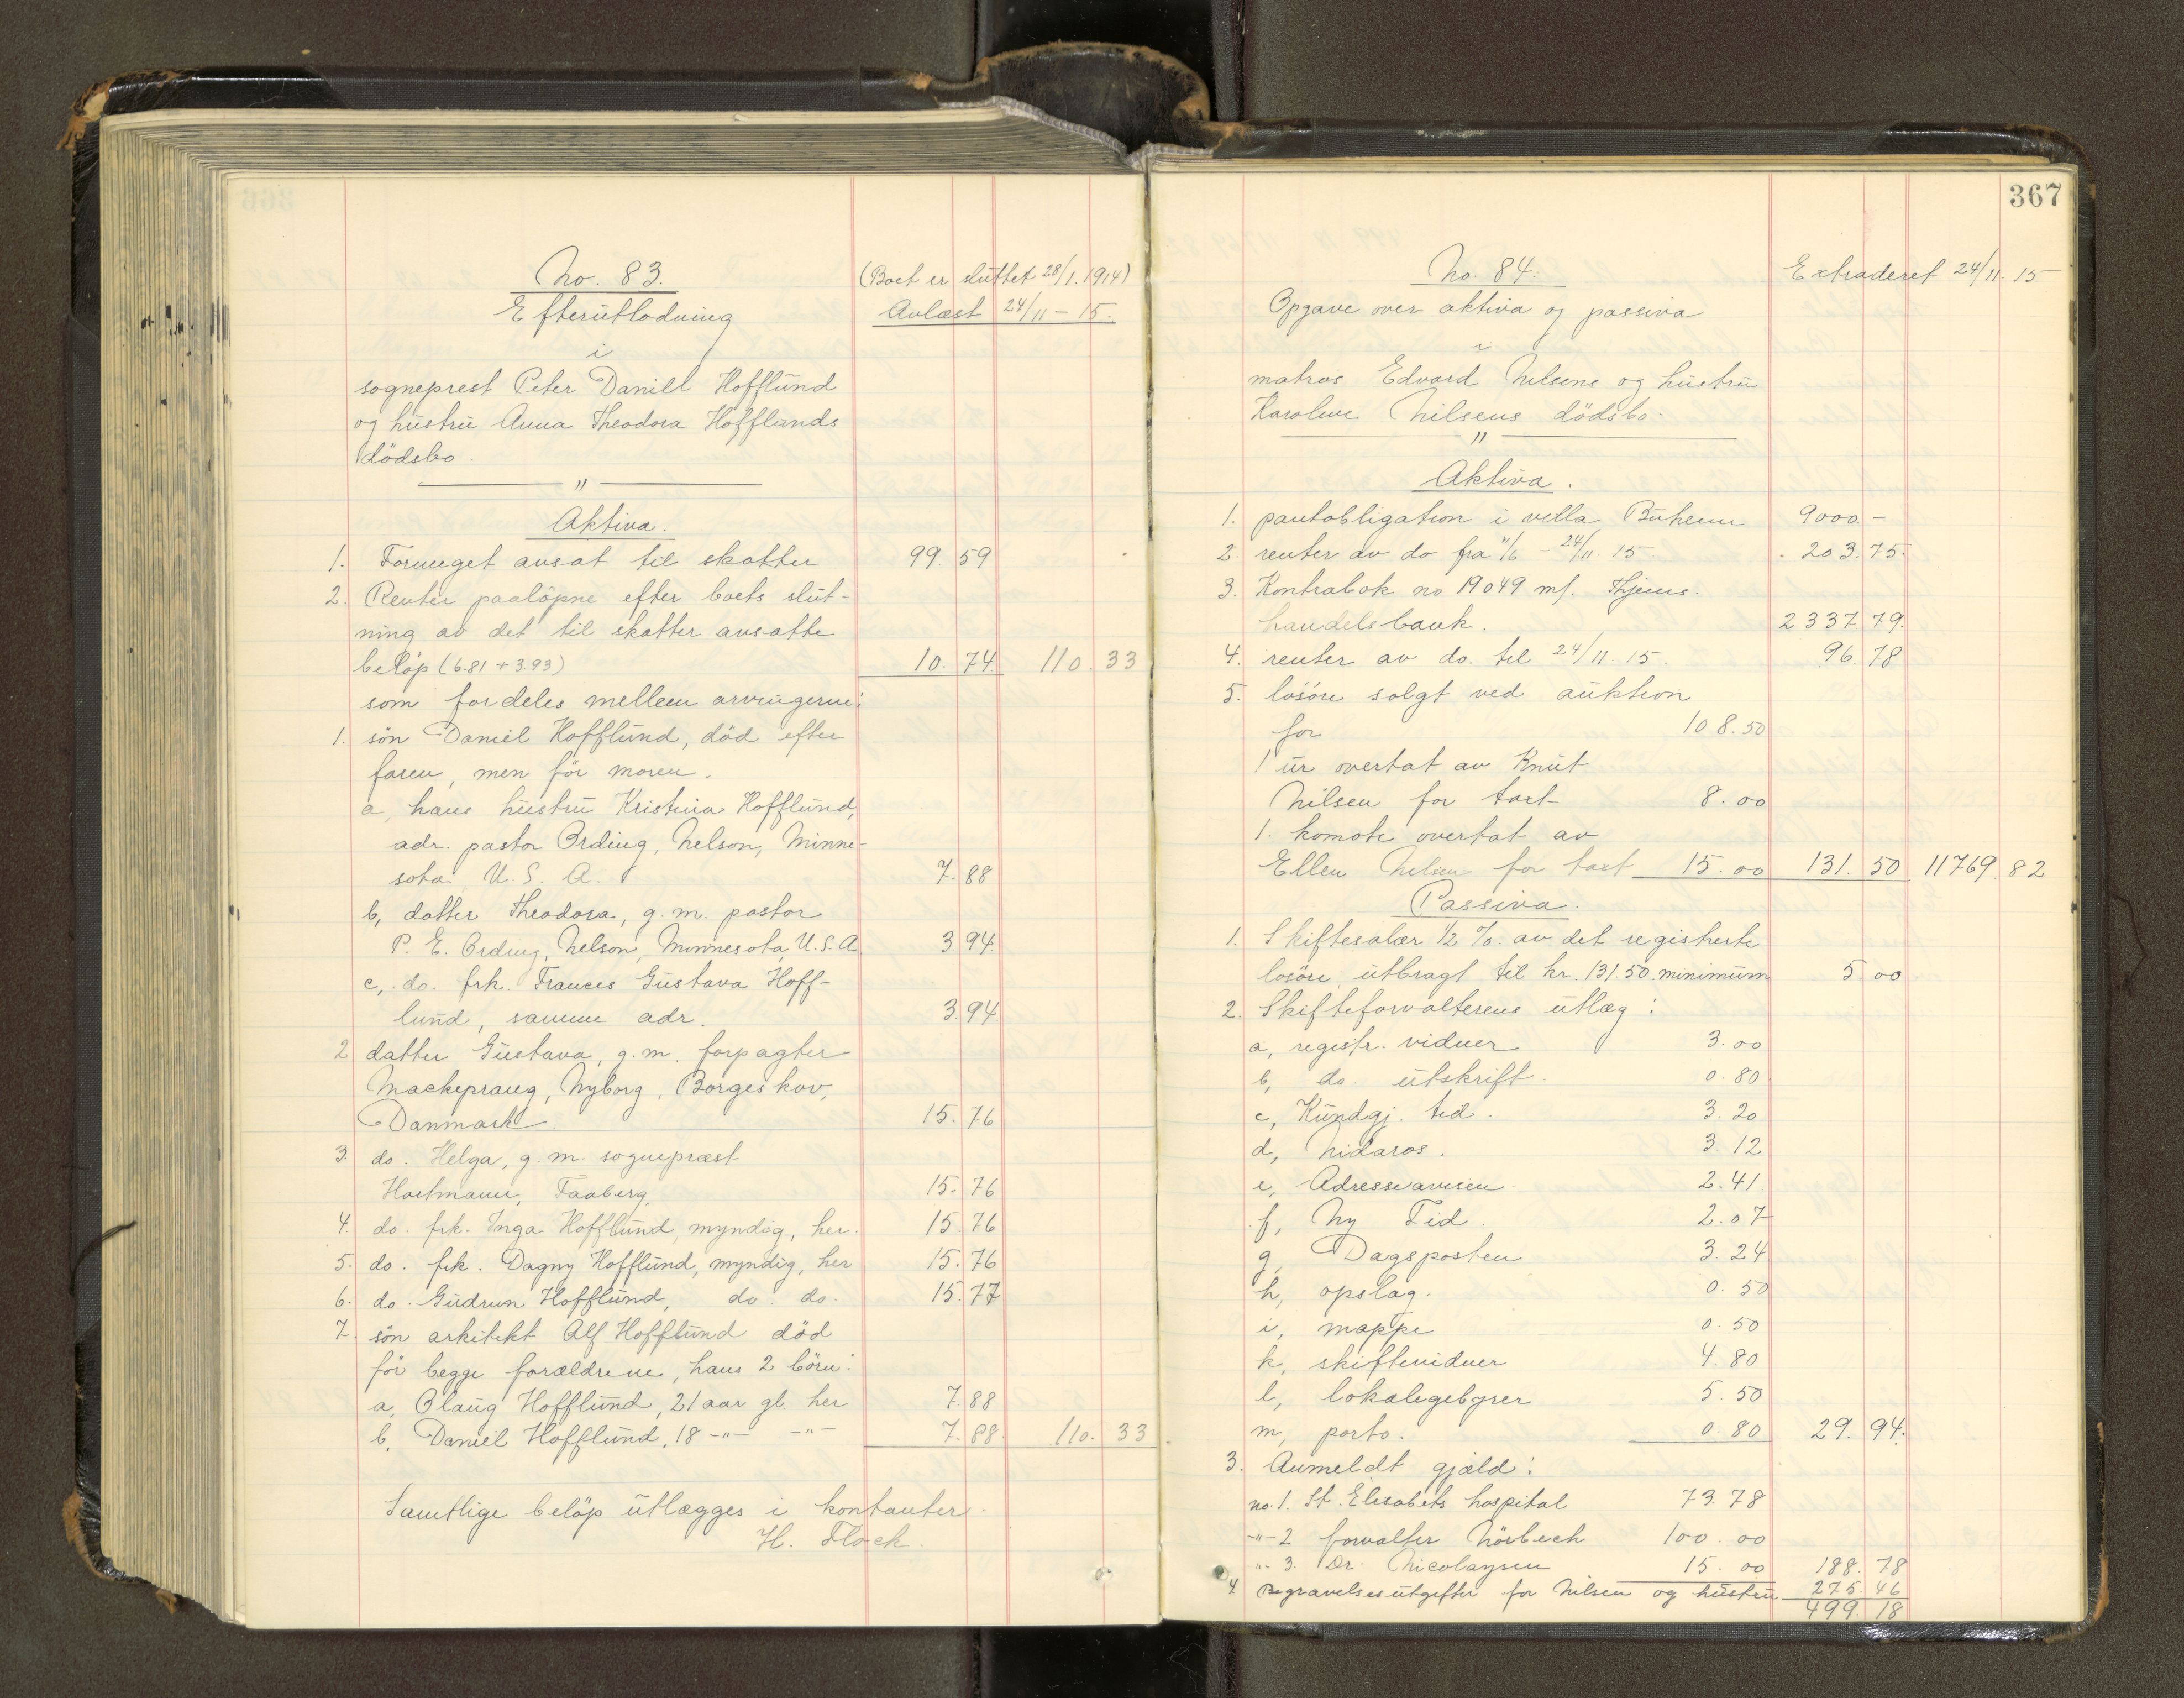 No. 83. (Boet er sluttet 28/1. 1914)
Efterutlodning Avlæst 24/11 - 15.
i
sogneprest Peter Daniel Hofflund
og hustru Anna Theodora Hofflunds
dödsbo.
— " —
Aktiva.
1. Formeget avsat til skatter 99. 59
2. Renter paalöpne efter boets slut-
ning av det til skatter avsatte
belöp (6.81 + 3.93) 10. 74 110. 33
som fordeles mellem arvingerne:
1. sön Daniel Hofflund, död efter
faren, men för moren.
a, hans hustru Kristina Hofflund,
adr. pastor Ording, Nelson, Minne-
sota U. S. A. 7. 88
b, datter Theodora, g. m. pastor
P. E. Ording, Nelson, Minnesota, U. S. A 3 94
c, do. frk. Frances Gustava Hoff-
lund, samme adr. 3. 94
2 datter Gustava, g. m. forpagter
Mackeprang, Nyborg, Borgeskov,
Danmark 15. 76
3. do. Helga, g. m. sognepræst
Hartmann, Faaberg, 15. 76
4. do. frk. Inga Hofflund, myndig, her. 15. 76
5. do. frk. Dagny Hofflund, myndig, her 15. 76
6. do. Gudrun Hofflund, do. do. 15. 77
7. sön arkitekt Alf Hofflund död
för begge forældrene, hans 2 börn:
a, Olaug Hofflund, 21 aar gl. her 7. 88
b, Daniel Hofflund, 18 -"- -"- 7. 88 110. 33
Samtlige belöp utlægges i kontanter.
H. Flock.
367
No. 84. Extraderet 24/11. 15
Opgave over aktiva og passiva
i
matros Edvard Nilsens og hustru
Karoline Nilsens dödsbo.
— " —
Aktiva.
1. pantobligation i villa Buheim 9000. -
2. renter av do fra 11/6 - 24/11. 15 203. 75.
3. Kontrabok no 19049 mf. Thjems.
handelsbank. 2337. 79.
4. renter av do. til 24/11. 15. 96. 78
5. lösöre solgt ved auktion
for 108. 50
1 ur overtat av Knut
Nilsen for taxt 8. 00
1. komode overtat av
Ellen Nilsen for taxt 15. 00 131. 50 11769. 82
Passiva.
1. Skiftesalær 1/2 %. av det registrerte
lösöre, utbragt til kr. 131.50. minimum 5. 00
2. Skifteforvalterens utlæg:
a, registr. vidner 3. 00
b, do. utskrift. 0. 80
c, Kundgj. tid. 3. 20
d, Nidaros. 3. 12
e, Adresseavisen 2. 41
f, Ny Tid. 2. 07
g, Dagsposten 3. 24
h, opslag. 0. 50
i, mappe 0. 50
k, skiftevidner 4. 80
l, lokalegebyrer 5. 50
m, porto. 0. 80 29. 94.
3. Anmeldt gjæld:
no. 1. St. Elisabets hospital 73. 78
-"- 2 forvalter Nörbech 100. 00
"- 3. Dr. Nicolaysen 15. 00 188. 78
4 Begravelsesutgifter for Nilsen og hustru 275. 46
499. 18